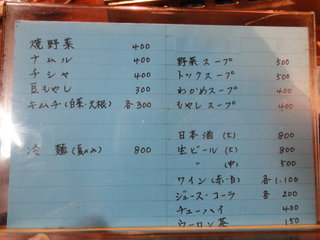 焼野菜 400
ナムル 400
チシャ 400
豆もやし 300
キムチ(白菜・大根) 各300
冷麺(夏のみ) 800
野菜スープ 500
トックスープ 500
わかめスープ 400
もやしスープ 400
日本酒(大) 800
生ビール(大) 800
〃 (中) 500
ワイン(赤・白) 各1,100
ジュース・コーラ 各200
チューハイ 400
ウーロン茶 150